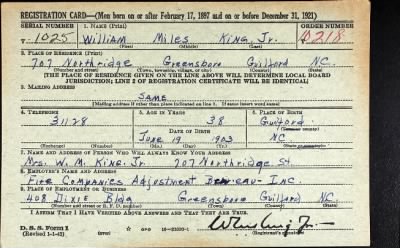 REGISTRATION CARD—(Men born on or after February 17, 1897 and on or before December 31, 1921)
SERIAL NUMBER 1. NAME (Print) ORDER NUMBER
1025 William Miles King, Jr. 10218
(First) (Middle) (Last)
2. PLACE OF RESIDENCE (Print)
707 Northridge Greensboro Guilford N.C.
(Number and street) (Town, township, village, or city) (County) (State)
[THE PLACE OF RESIDENCE GIVEN ON THE LINE ABOVE WILL DETERMINE LOCAL BOARD
JURISDICTION; LINE 2 OF REGISTRATION CERTIFICATE WILL BE IDENTICAL]
3. MAILING ADDRESS
SAME
[Mailing address if other than place indicated on line 2. If same insert word same]
4. TELEPHONE 5. AGE IN YEARS 6. PLACE OF BIRTH
31128 38 Guilford
DATE OF BIRTH
June 19 1903 NC
7. NAME AND ADDRESS OF PERSON WHO WILL ALWAYS KNOW YOUR ADDRESS
Mrs. W. M. King, Jr. 707 Northridge St
8. EMPLOYER'S NAME AND ADDRESS
Fire Companies Adjustment Bureau Inc.
9. PLACE OF EMPLOYMENT OR BUSINESS
408 Dixie Bldg Greensboro Guilford N.C.
(Number and street or R. F. D. number) (Town) (County) (State)
I AFFIRM THAT I HAVE VERIFIED ABOVE ANSWERS AND THAT THEY ARE TRUE.
D. S. S. Form 1
(Revised 1-1-42) GPO
(Registrant's signature)